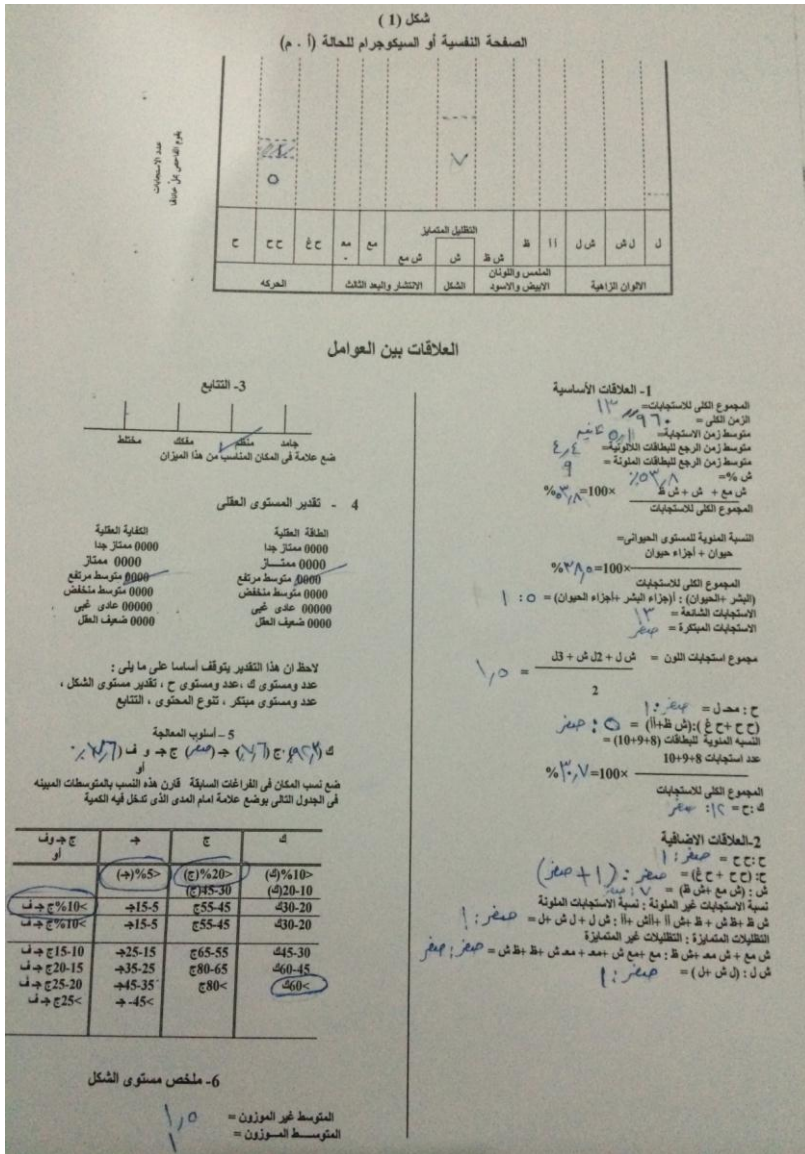 شكل ( 1 )
الصفحة النفسية أو السيكوجرام للحالة (أ . م)
عدد الاستجابات
٧
٥
ح
ح ح
ح غ
مع
مع
التظليل المتمايز
ش مع
ش
ش ظ
ظ
أأ
ش ل
ل ش
ل
الحركه
الانتشار والبعد الثالث
الشكل
الملمس واللونان الابيض والاسود
الالوان الزاهية
العلاقات بين العوامل
1- العلاقات الأساسية
المجموع الكلى للاستجابات= ١٣
الزمن الكلى = ٩٦٠
متوسط زمن الاستجابة=
متوسط زمن الرجع للبطاقات اللالونية= ٤,٤
متوسط زمن الرجع للبطاقات الملونة = ٩
ش %= ٥٣,٨٪
ش مع + ش + ش ظ
×100= ٥٣,٨%
المجموع الكلى للاستجابات
النسبة المئوية للمستوى الحيوانى=
حيوان + أجزاء حيوان
×100= ٣٨,٥%
المجموع الكلى للاستجابات
(البشر +الحيوان) : (أجزاء البشر +أجزاء الحيوان)= ٥ : ١
الاستجابات الشائعة = ١٣
الاستجابات المبتكرة = صفر
مجموع استجابات اللون = ش ل + 2ل ش + 3ل
= ١,٥
2
ح : محـ ل = صفر : ١
(ح ح +ح غ ):(ش ظ+أأ) = ٥ : صفر
النسبه المئوية للبطاقات (8+9+10) =
عدد استجابات 8+9+10
×100= ٣٠,٧%
المجموع الكلى للاستجابات
ك :ح = ١٢ : صفر
2-العلاقات الاضافية
ح:ح ح = صفر : ١
ح: (ح ح + ح غ)= صفر : (١ + صفر)
ش : (ش مع +ش ظ) = ٧ : صفر
نسبة الاستجابات غير الملونة : نسبة الاستجابات الملونة
ش ظ +ظ ش + ظ +ش أأ +أأش +أأ : ش ل + ل ش +ل= صفر : ١
التظليلات المتمايزة : التظليلات غير المتمايزة
ش مع + ش معـ +ش ظ : مع +مع ش +معـ + معـ ش +ظ +ظ ش = صفر : صفر
ش ل : (ل ش +ل) = صفر : ١
3- التتابع
جامد
منظم
مفكك
مختلط
ضع علامة فى المكان المناسب من هذا الميزان
4 - تقدير المستوى العقلى
الطاقة العقلية
الكفاية العقلية
0000 ممتاز جدا
0000 ممتاز جدا
0000 ممتـــاز
0000 ممتاز
0000 متوسط مرتفع
0000 متوسط مرتفع
0000 متوسط منخفض
0000 متوسط منخفض
0000 عادى غبى
00000 عادى غبى
0000 ضعيف العقل
0000 ضعيف العقل
لاحظ ان هذا التقدير يتوقف أساسا على ما يلى :
عدد ومستوى ك ،عدد ومستوى ح ، تقدير مستوى الشكل ،
عدد ومستوى مبتكر ، تنوع المحتوى ، التتابع
5 - أسلوب المعالجة
ك (٩٢,٣) ج (٧,٦) جـ (صفر) ج جـ و ف
أو
ضع نسب المكان فى الفراغات السابقة قارن هذه النسب بالمتوسطات المبينه
فى الجدول التالى بوضع علامة امام المدى الذى تدخل فيه الكمية
ك
ج
جـ
ج جـ وف
أو
<10%(ك)
<20%(ج)
<5%(جـ)
20-10(ك)
45-30(ج)
30-20ك
55-45ج
15-5جـ
>10%ج جـ ف
30-20ك
55-45ج
15-5جـ
>10%ج جـ ف
45-30ك
65-55ج
25-15جـ
15-10ج جـ ف
60-45ك
80-65ج
35-25جـ
20-15ج جـ ف
<60ك
>80ج
45-35جـ
25-20ج جـ ف
>45-جـ
<25ج جـ ف
6- ملخص مستوى الشكل
المتوسط غير الموزون = ١,٥
المتوســـط المـــوزون = ١